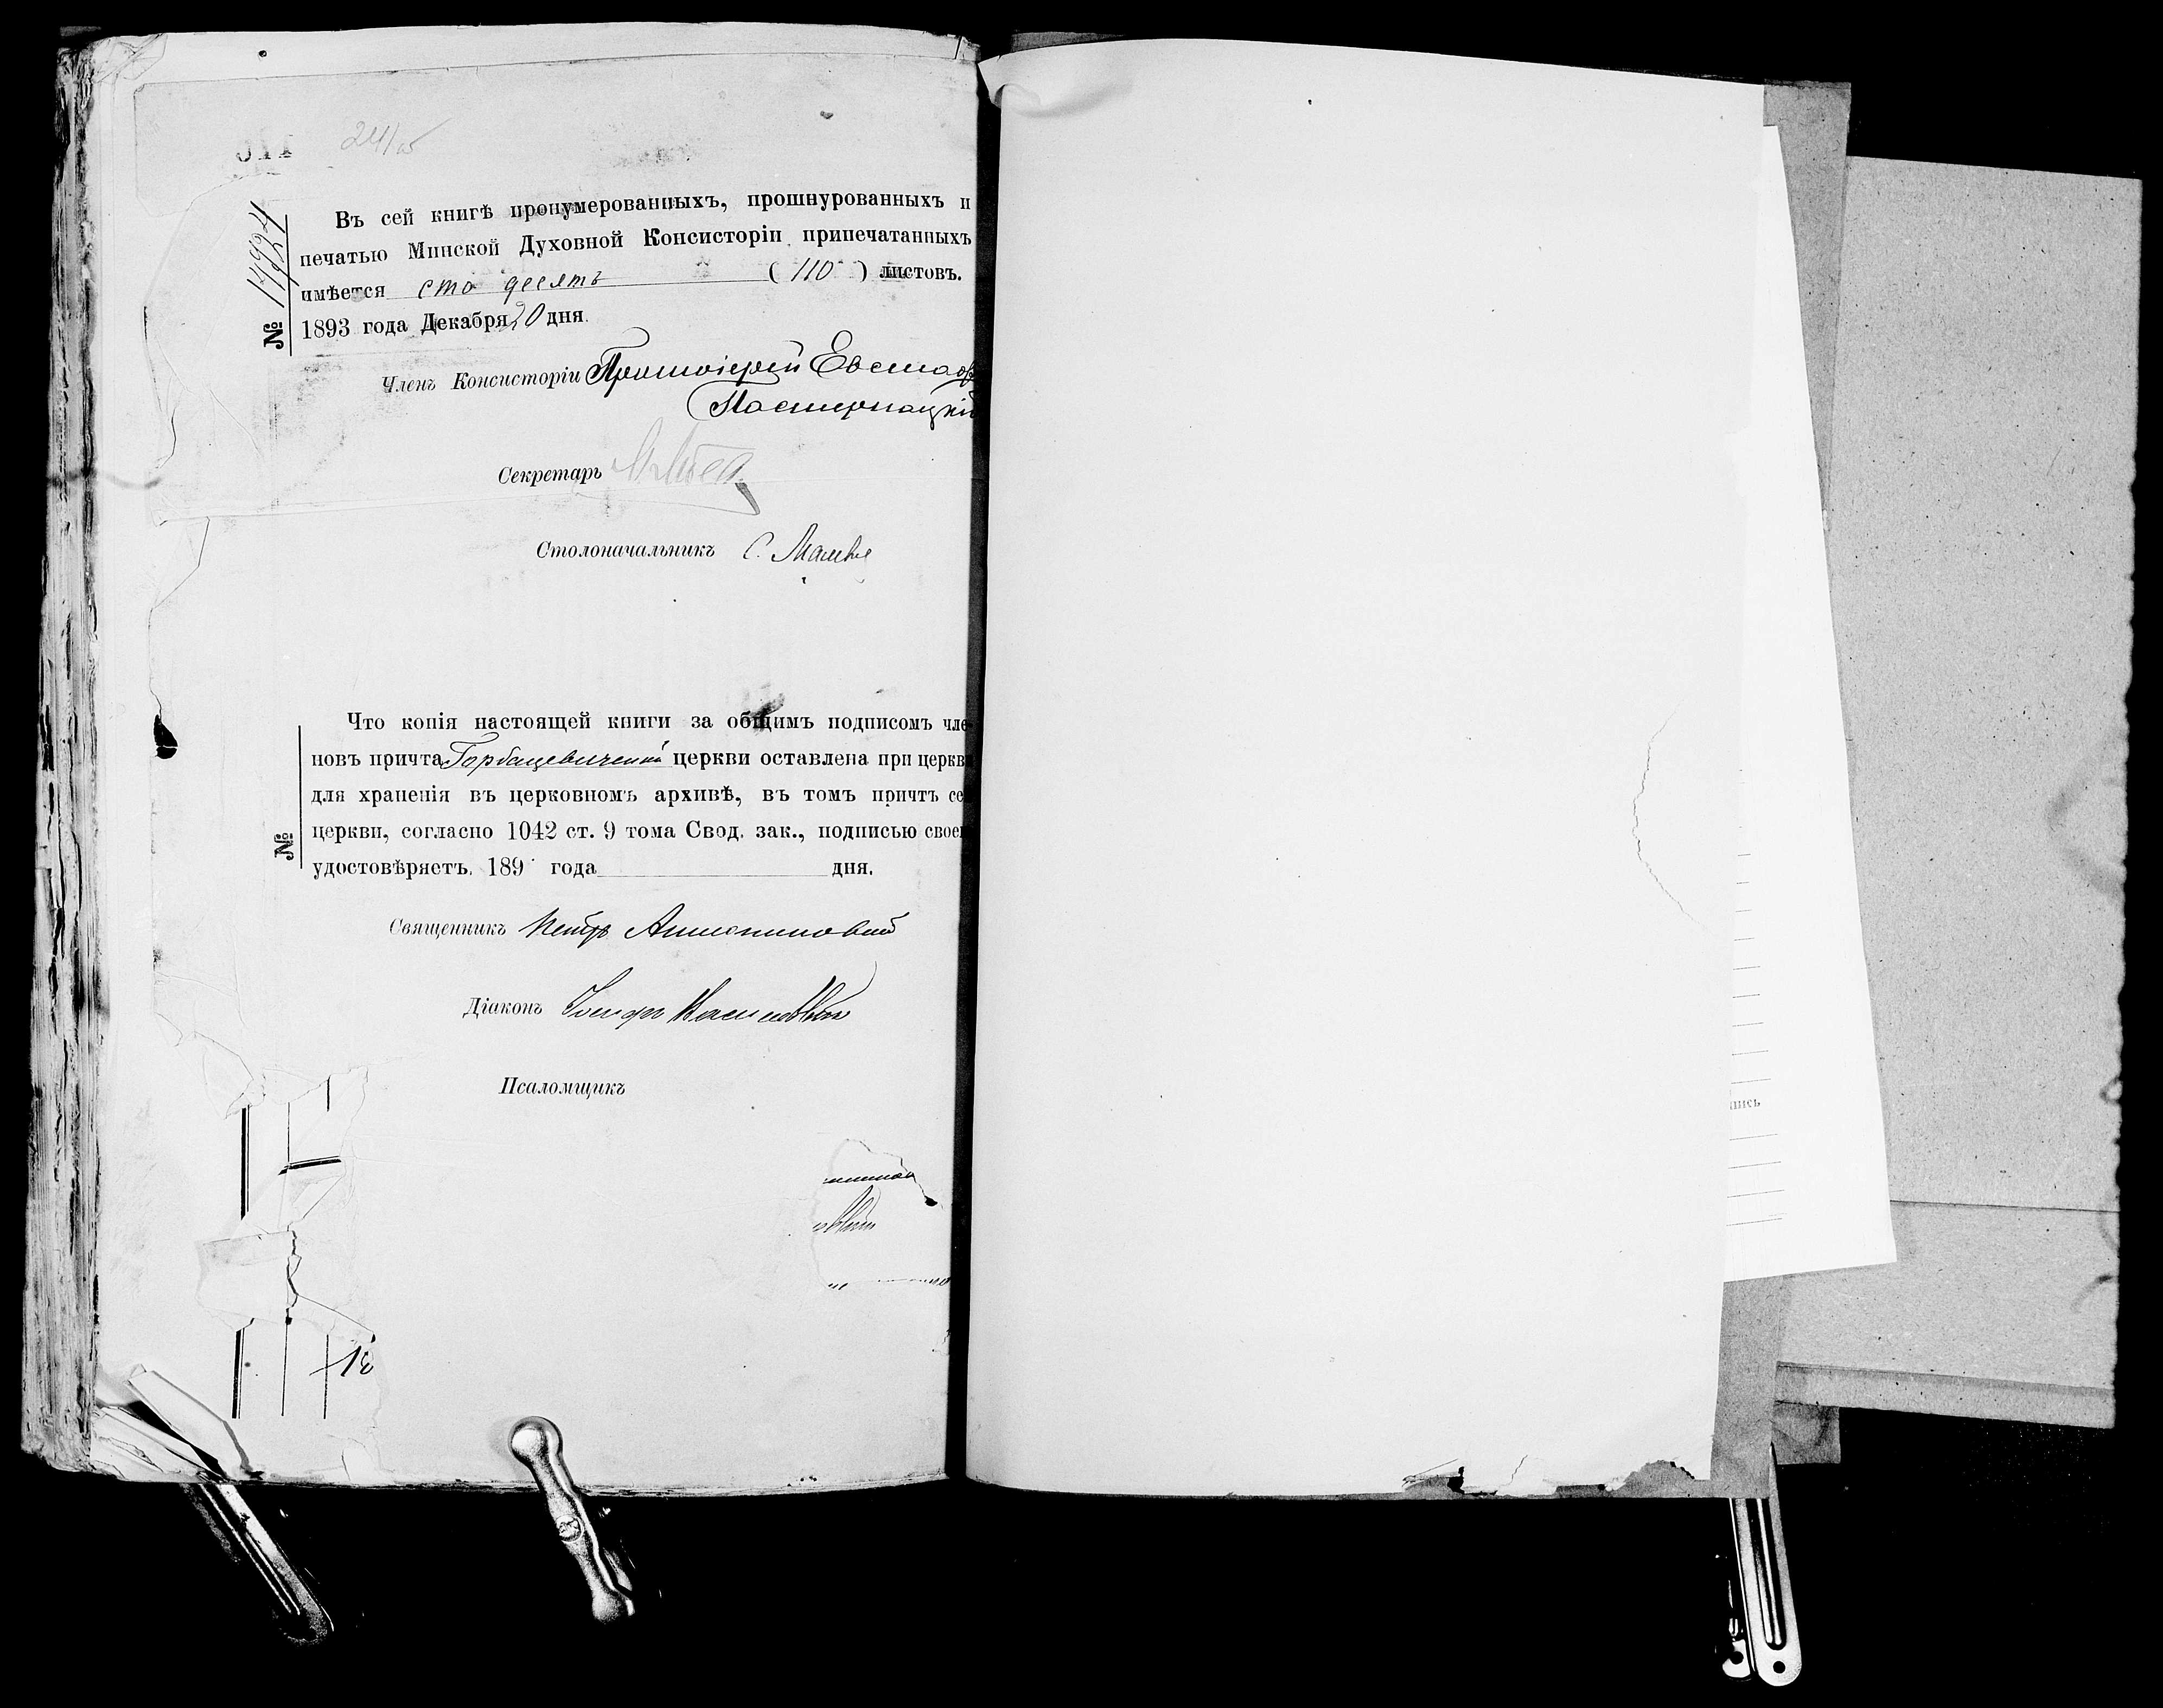 241 об
№ 14924
Въ сей книгѣ пронумерованныхъ, прошнурованныхъ и
печатью Минской Духовной Консисторіи припечатанныхъ
имѣется сто десять (110) листовъ.
1893 года Декабря 20 дня.
Членъ Консисторіи Протоіерей Евстаф
Пастернацкій
Секретарь
Столоначальникъ С.
Что копія настоящей книги за общимъ подписомъ чле
новъ причта Горбацевичской церкви оставлена при церкви
для храненія въ церковномъ архивѣ, въ томъ причтъ се
церкви, согласно 1042 ст. 9 тома Свод. зак., подписью свое
№
удостовѣряетъ. 189 года дня.
Священникъ Петръ
Діаконъ
Псаломщикъ
пись